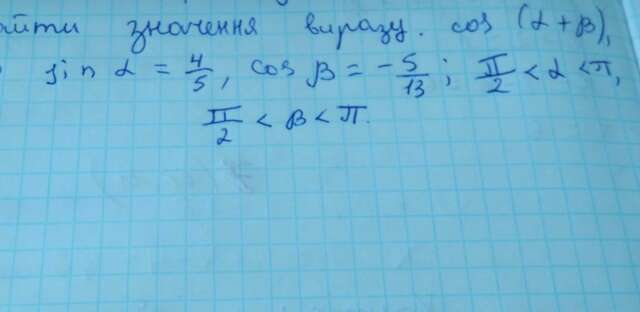 айти значення виразу. cos (α + β),
sin α = 4/5, cos β = - 5/13; π/2 < α < π,
π/2 < β < π.